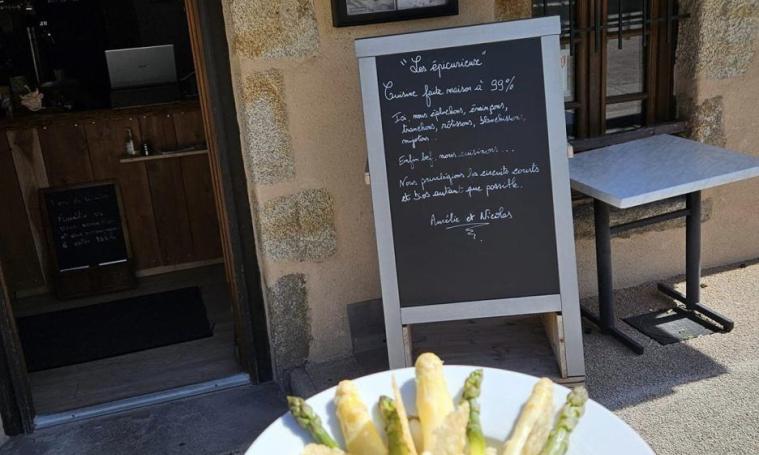 "Les épicurieux"
Cuisine faite maison à 99%
Ici, nous épluchons, émincons,
tranchons, rôtissons, blanchissons,
mijotons..
Enfin bref, nous cuisinons...
Nous privilégions les circuits courts
et bios autant que possible.
Aurélie et Nicolas